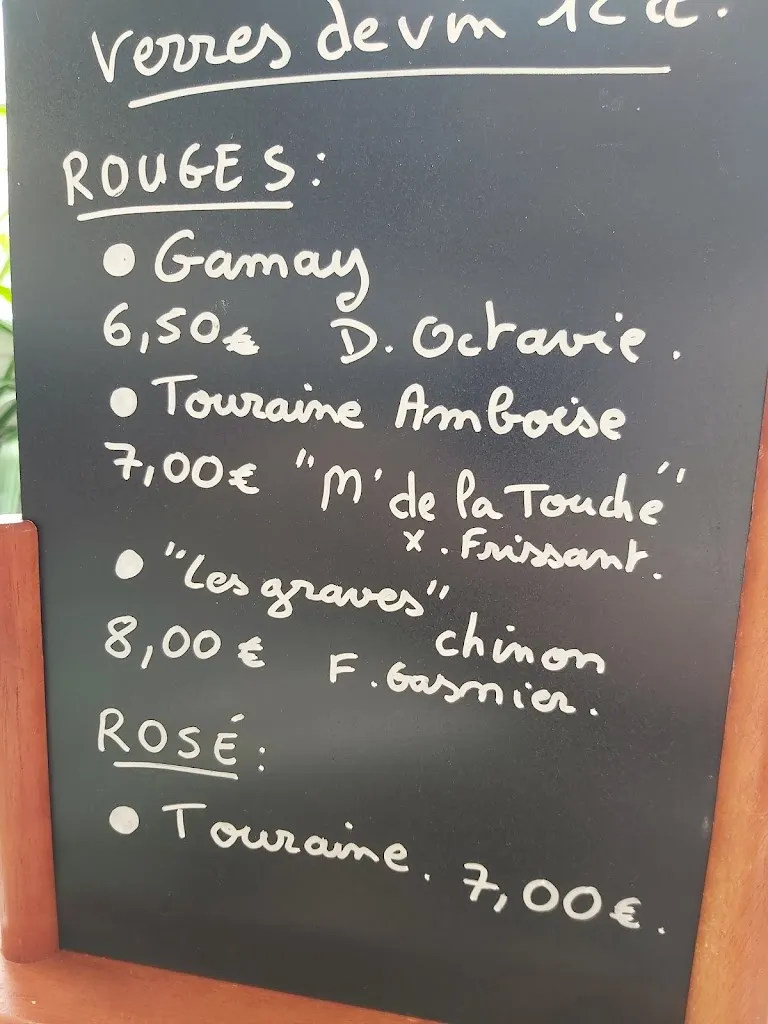 verres de vin 12 cl.
ROUGES:
● Gamay
6,50€ D. Octavie.
● Touraine Amboise
7,00€ "M' de la Touche"
X. Frissant.
● "Les graves"
chinon
8,00€ F. Gasnier.
ROSÉ:
● Touraine. 7,00€.